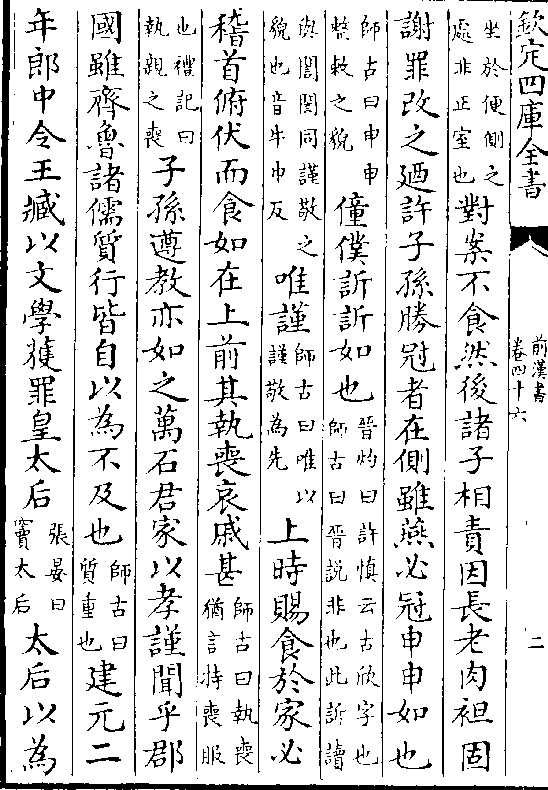 欽定四庫全書
前漢書
卷四十六
二
坐於便側之
處非正室也
對案不食然後諸子相責因長老肉袒固
謝罪改之廼許子孫勝冠者在側雖燕必冠申申如也
師古曰申申
整敕之貌
僮僕訢訢如也
晉灼曰許慎云古欣字也
師古曰晉說非也此訢讀
與誾誾同謹敬之
貌也音牛巾反
唯謹
師古曰唯以
謹敬為先
上時賜食於家必
稽首俯伏而食如在上前其執喪哀戚甚
師古曰執喪
猶言持喪服
也禮記曰
執親之喪
子孫遵教亦如之萬石君家以孝謹聞乎郡
國雖齊魯諸儒質行皆自以為不及也
師古曰
質重也
建元二
年郎中令王臧以文學獲罪皇太后
張晏曰
竇太后
太后以為